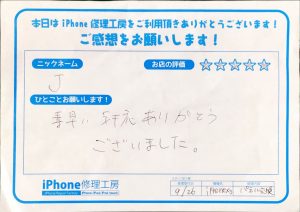 本日は iPhone 修理工房をご利用頂きありがとうございます!
ご感想をお願いします!
ニックネーム
お店の評価
J
ひとことお願いします!
ありがとう
ございました。
iPhone修理工房
9/26